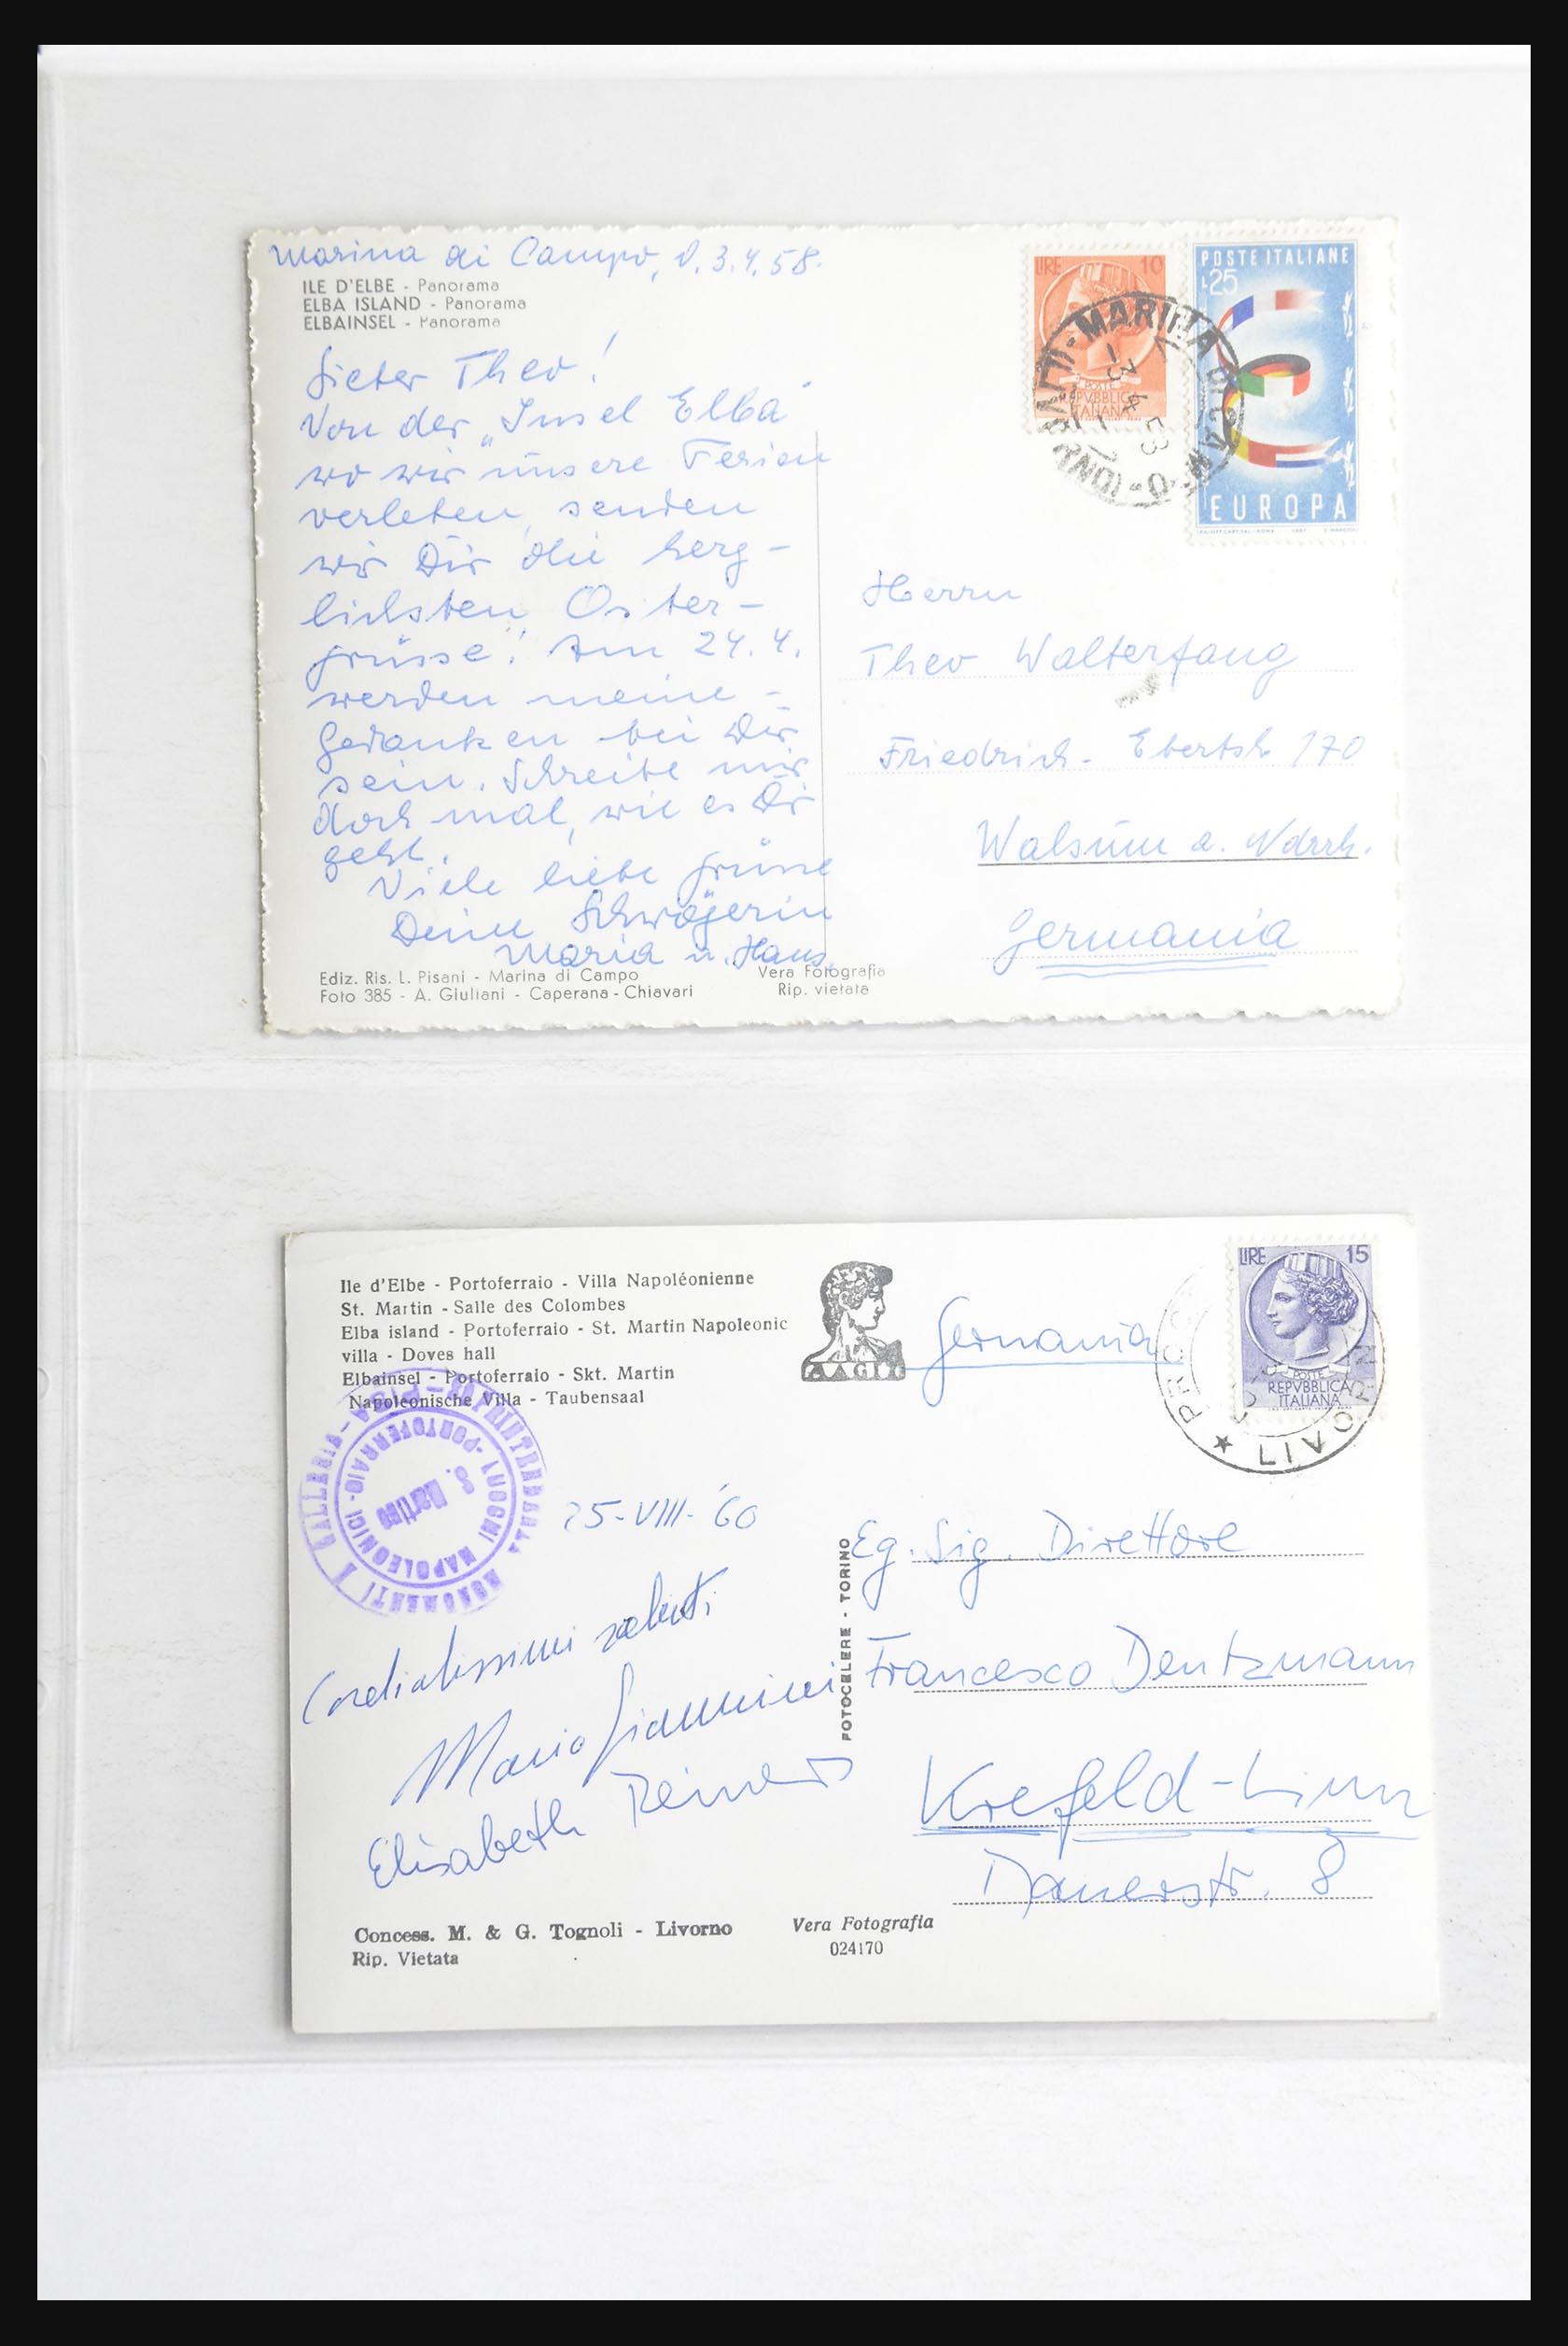 Marina di Campo, d. 3.4.58.
ILE D'ELBE - Panorama
ELBA ISLAND - Panorama
ELBAINSEL - Panorama
Lieber Theo!
Von der „Insel Elba"
wo wir unsere Ferien
verleben, senden
wir Dir die herz-
lichsten Oster-
grüsse! Am 24.4.
werden meine
Gedanken bei Dir
sein. Schreibe mir
doch mal, wie es Dir
geht.
Viele liebe Grüsse
Deine Schwägerin
Maria u. Hans.
Ediz. Ris. L. Pisani - Marina di Campo
Foto 385 - A. Giuliani - Caperana - Chiavari
Vera Fotografia
Rip. vietata
LIRE 10
POSTE
REPVBBLICA
ITALIANA
POSTE ITALIANE
L25
EUROPA
MARINA DI CAMPO
-3 4 58
Herrn
Theo Walterfang
Friedrich-Ebertstr 170
Walsum a. Ndrrh.
Germania
Ile d'Elbe - Portoferraio - Villa Napoléonienne
St. Martin - Salle des Colombes
Elba island - Portoferraio - St. Martin Napoleonic
villa - Doves hall
Elbainsel - Portoferraio - Skt. Martin
Napoleonische Villa - Taubensaal
MONUMENTI E GALLERIE - PISA
LUOGHI NAPOLEONICI - PORTOFERRAIO -
S. Martino
Germania
LIRE 15
POSTE
REPVBBLICA
ITALIANA
LIVORNO
25-VIII-'60
Cordialissimi saluti
Mario Giannini
Elisabeth Reiners
FOTOCELERE - TORINO
Eg. Sig. Direttore
Francesco Dentzmann
Krefeld-Linn
8
Concess. M. & G. Tognoli - Livorno
Rip. Vietata
Vera Fotografia
024170